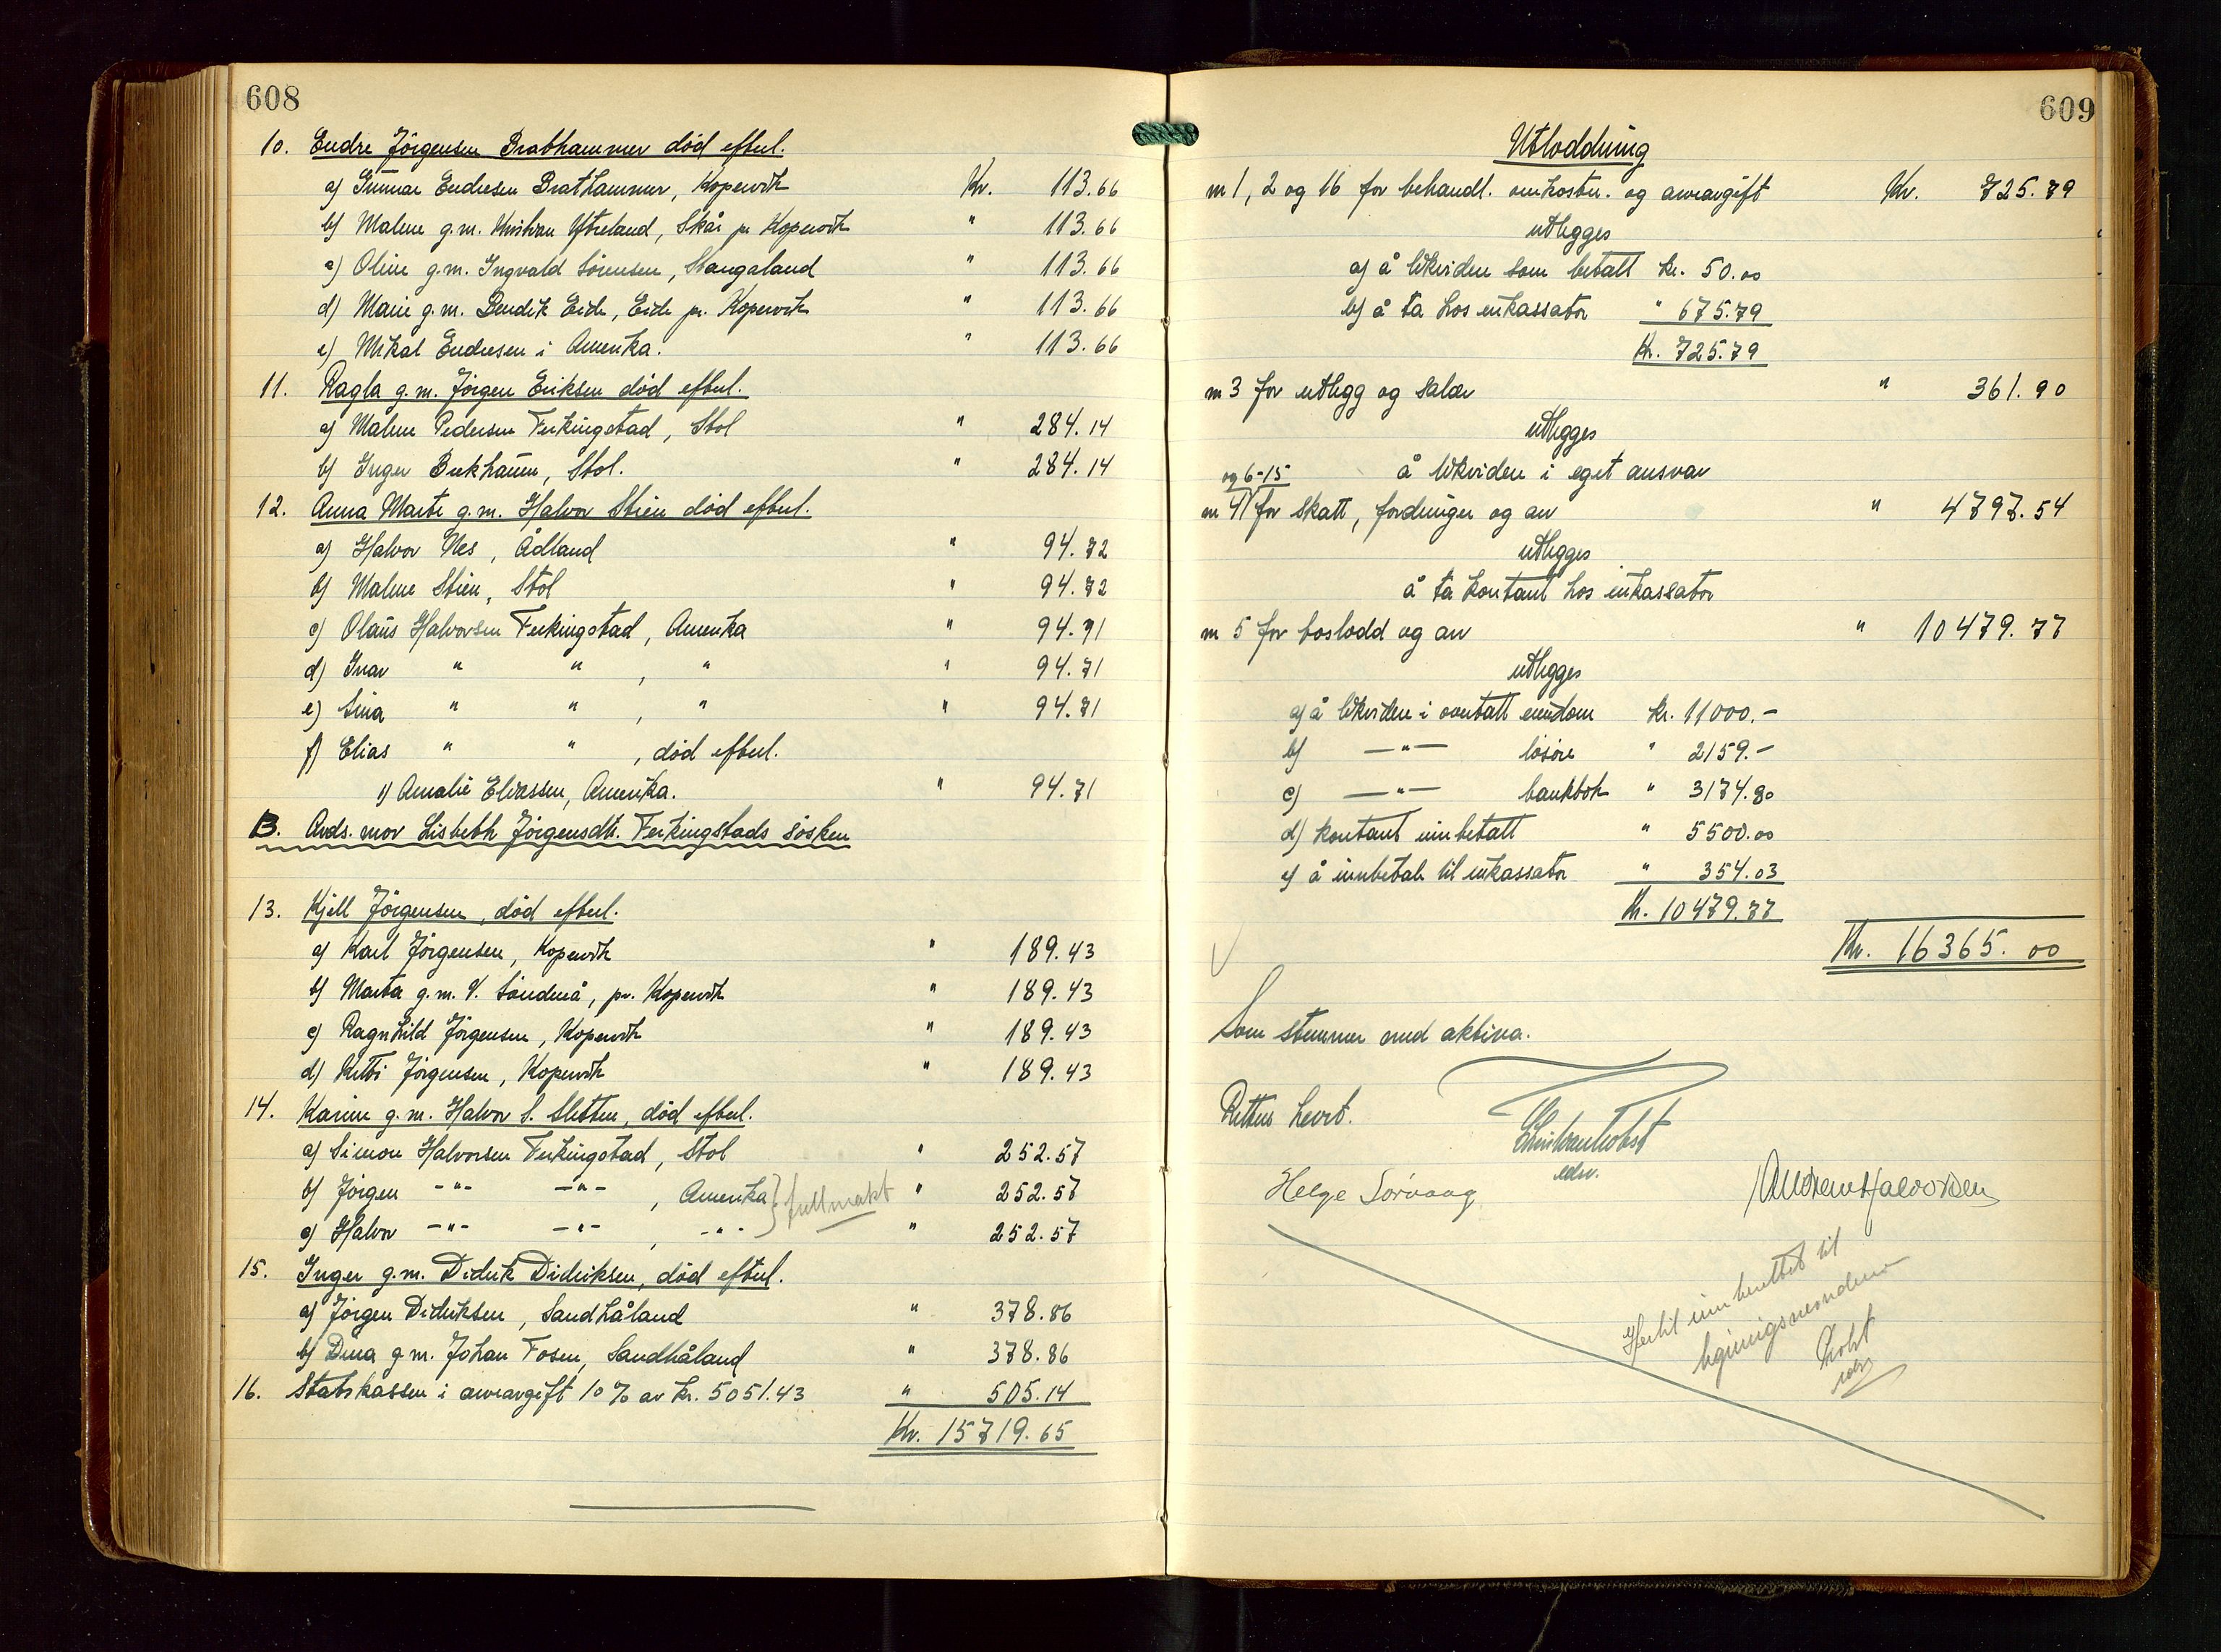 608
10. Endre Jörgensen Brathammer död efterl.
a) Gunnar Endresen Brathammer, Kopervik Kr. 113.66
b) Malene g.m. Kristian Ytreland, Skår pr Kopervik " 113.66
c) Oline g.m. Ingvald Sörensen, Stangaland " 113.66
d) Marie g.m. Bendik Eide, Eide pr. Kopervik " 113.66
e) Mikal Endresen i Amerika. " 113.66
11. Ragla g.m. Jörgen Eriksen död efterl.
a) Malene Pedersen Ferkingstad, Stol " 284.14
b) Inger Birkhaum, Stol. " 284.14
12. Anna Marte g.m. Halvor Stien död efterl.
a) Halvor Nes, Ådland " 94.72
b) Malene Stien, Stol " 94.72
c) Olaus Halvorsen Ferkingstad, Amerika " 94.71
d) Ivar " " , " " 94.71
e) Sina " " , " " 94.71
f) Elias " " , död efterl.
1) Amalie Eliassen, Amerika. " 94.71
B. Avds. mor Lisbeth Jörgensdtr. Ferkingstads sösken
13. Kjell Jörgensen, död efterl.
a) Karl Jörgensen, Kopervik " 189.43
b) Marta g.m. V. Sönderå, pr. Kopervik " 189.43
c) Ragnhild Jörgensen, Kopervik " 189.43
d) Kitti Jörgensen, Kopervik " 189.43
14. Karine g.m. Halvor S. Sletten, död efterl.
a) Simon Halvorsen Ferkingstad, Stol " 252.57
b) Jörgen -"- -"- , Amerika } fullmakt " 252.57
c) Halvor -"- -"- , -"- " 252.57
15. Inger g.m. Didrik Didriksen, död efterl.
a) Jörgen Didriksen, Sandhåland " 378.86
b) Dina g.m. Johan Fosen, Sandhåland " 378.86
16. Statskassen i arveavgift 10 % av kr. 5051.43 " 505.14
Kr. 15719.65
609
Utloddning
nr 1, 2 og 16 for behandl. omkostn. og arveavgift Kr. 725.79
utlegges
a) å likviden som betalt kr. 50.00
b) å ta hos inkassator " 675.79
Kr. 725.79
nr 3 for utlegg og salær " 361.90
utlegges
å likviden i eget ansvar
og 6-15
nr 4 for skatt, fordringer og arv " 4797.54
utlegges
å ta kontant hos inkassator
nr 5 for boslodd og arv " 10479.77
utlegges
a) å likviden i overtatt eiendom kr. 11000.-
b) -"- lösöre " 2159.-
c) -"- bankbok " 3174.80
d) kontant innbetalt " 5500.00
e) å innbetale til inkassator " 354.03
Kr. 10479.77
Kr. 16365.00
Som stemmer med aktiva.
Retten hevet.
edsv.
Helge Sörvaag
Andreas Halvorsen
Hertil innberettet til
ligningsnemndene